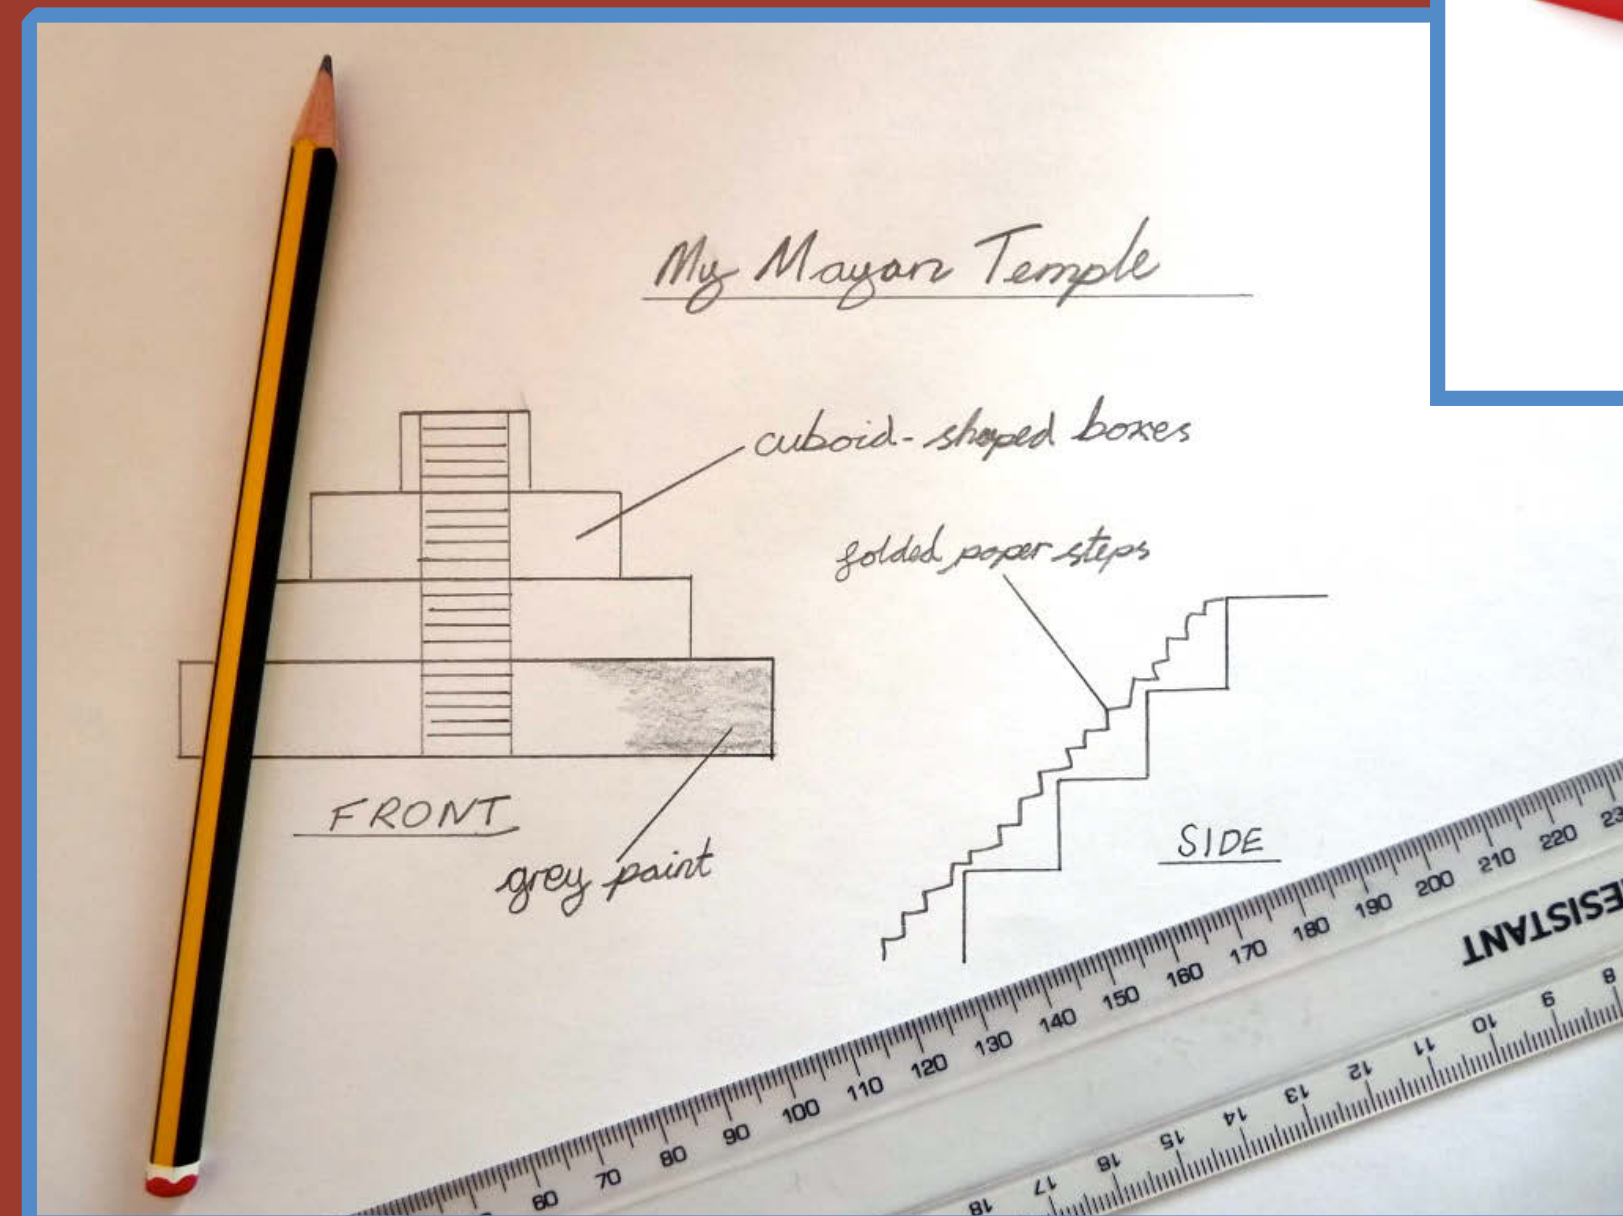 My Mayan Temple
cuboid-shaped boxes
folded paper steps
FRONT
SIDE
grey paint
60 70 80 90 100 110 120 130 140 150 160 170 180 190 200 210 220 23
ESISTANT
18 17 16 15 14 13 12 11 10 9 8